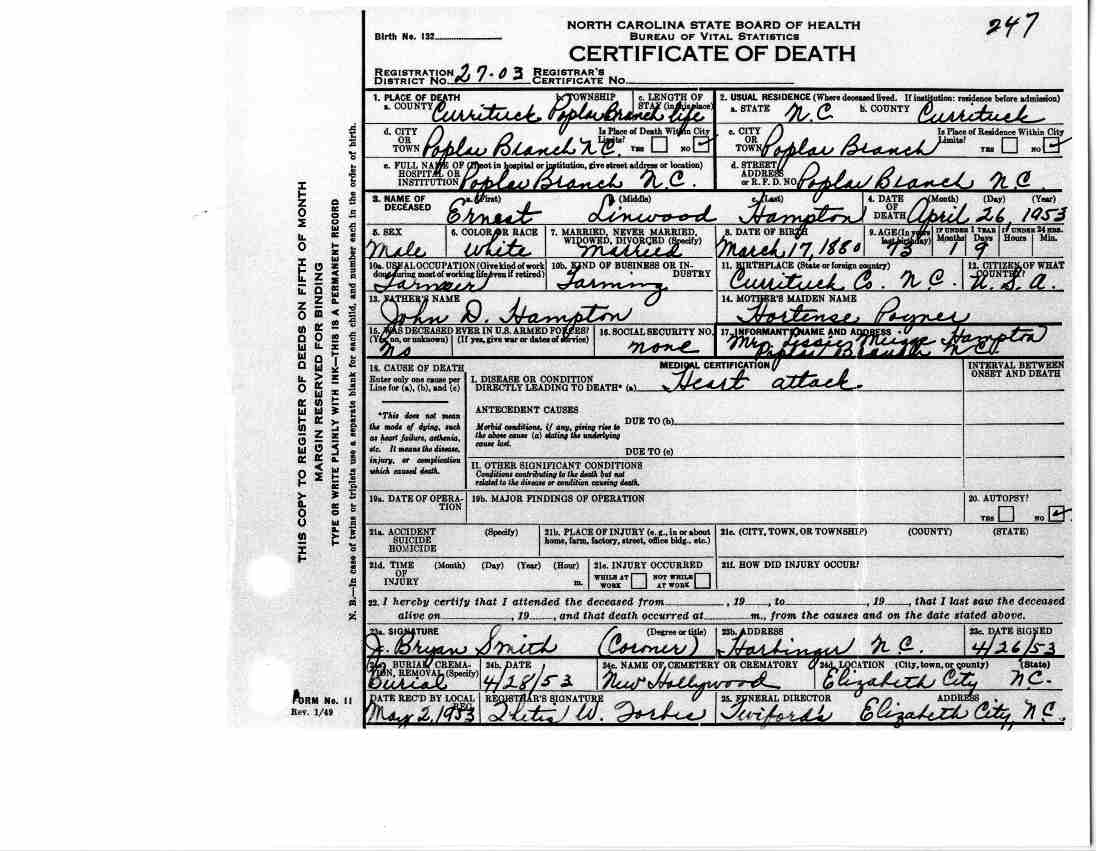 247
NORTH CAROLINA STATE BOARD OF HEALTH
BUREAU OF VITAL STATISTICS
CERTIFICATE OF DEATH
Birth No. 132
REGISTRATION DISTRICT No. 27-03 REGISTRAR'S CERTIFICATE No.
1. PLACE OF DEATH
a. COUNTY Currituck
b. TOWNSHIP Poplar Branch
c. LENGTH OF STAY (in this place) life
2. USUAL RESIDENCE (Where deceased lived. If institution: residence before admission)
a. STATE N.C.
b. COUNTY Currituck
d. CITY OR TOWN Poplar Branch N.C.
Is Place of Death Within City Limits? YES NO
c. CITY OR TOWN Poplar Branch
Is Place of Residence Within City Limits? YES NO
e. FULL NAME OF (If not in hospital or institution, give street address or location) HOSPITAL OR INSTITUTION Poplar Branch N.C.
d. STREET ADDRESS or R. F. D. NO. Poplar Branch N.C.
3. NAME OF DECEASED
a. (First) Ernest
b. (Middle) Linwood
c. (Last) Hampton
4. DATE OF DEATH (Month) (Day) (Year) April 26, 1953
5. SEX Male
6. COLOR OR RACE White
7. MARRIED, NEVER MARRIED, WIDOWED, DIVORCED (Specify) Married
8. DATE OF BIRTH March 17, 1880
9. AGE (In years last birthday) 73
IF UNDER 1 YEAR Months 1 Days 9
IF UNDER 24 HRS. Hours Min.
10a. USUAL OCCUPATION (Give kind of work done during most of working life, even if retired) Farmer
10b. KIND OF BUSINESS OR INDUSTRY Farming
11. BIRTHPLACE (State or foreign country) Currituck Co. N.C.
12. CITIZEN OF WHAT COUNTRY? U.S.A.
13. FATHER'S NAME John D. Hampton
14. MOTHER'S MAIDEN NAME Hortense Poyner
15. WAS DECEASED EVER IN U.S. ARMED FORCES? (Yes, no, or unknown) (If yes, give war or dates of service) No
16. SOCIAL SECURITY NO. none
17. INFORMANT'S NAME AND ADDRESS Mrs. Hampton
Poplar Branch N.C.
18. CAUSE OF DEATH
Enter only one cause per Line for (a), (b), and (c)
MEDICAL CERTIFICATION
INTERVAL BETWEEN ONSET AND DEATH
I. DISEASE OR CONDITION DIRECTLY LEADING TO DEATH* (a) Heart attack
*This does not mean the mode of dying, such as heart failure, asthenia, etc. It means the disease, injury, or complication which caused death.
ANTECEDENT CAUSES
Morbid conditions, if any, giving rise to the above cause (a) stating the underlying cause last.
DUE TO (b)
DUE TO (c)
II. OTHER SIGNIFICANT CONDITIONS
Conditions contributing to the death but not related to the disease or condition causing death.
19a. DATE OF OPERATION
19b. MAJOR FINDINGS OF OPERATION
20. AUTOPSY? YES NO
21a. ACCIDENT SUICIDE HOMICIDE (Specify)
21b. PLACE OF INJURY (e.g., in or about home, farm, factory, street, office bldg., etc.)
21c. (CITY, TOWN, OR TOWNSHIP) (COUNTY) (STATE)
21d. TIME OF INJURY (Month) (Day) (Year) (Hour) m.
21e. INJURY OCCURRED WHILE AT WORK NOT WHILE AT WORK
21f. HOW DID INJURY OCCUR?
22. I hereby certify that I attended the deceased from , 19 , to , 19 , that I last saw the deceased
alive on , 19 , and that death occurred at m., from the causes and on the date stated above.
23a. SIGNATURE (Degree or title) J. Bryan Smith (Coroner)
23b. ADDRESS Harbinger N.C.
23c. DATE SIGNED 4/26/53
24a. BURIAL, CREMATION, REMOVAL (Specify) Burial
24b. DATE 4/28/53
24c. NAME OF CEMETERY OR CREMATORY New Hollywood
24d. LOCATION (City, town, or county) (State) Elizabeth City N.C.
DATE REC'D BY LOCAL REG. May 2, 1953
REGISTRAR'S SIGNATURE W. Forbes
25. FUNERAL DIRECTOR ADDRESS Twiford's Elizabeth City, N.C.
FORM No. 11
Rev. 1/49
THIS COPY TO REGISTER OF DEEDS ON FIFTH OF MONTH
MARGIN RESERVED FOR BINDING
TYPE OR WRITE PLAINLY WITH INK—THIS IS A PERMANENT RECORD
N. B.—In case of twins or triplets use a separate blank for each child, and number each in the order of birth.